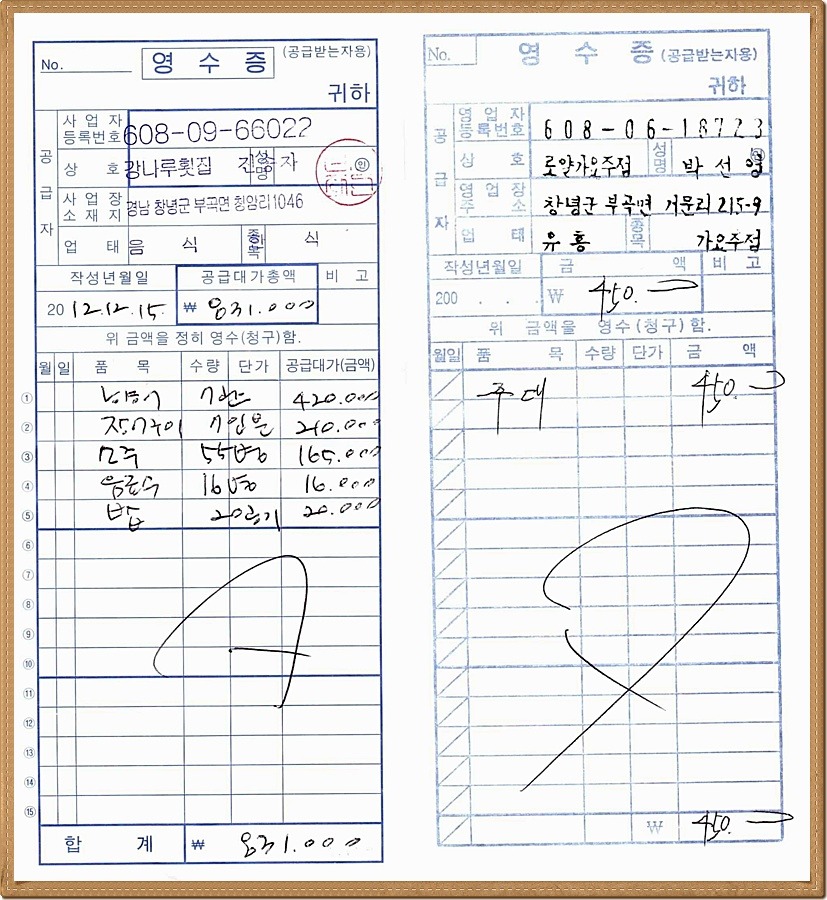 No.
영 수 증 (공급받는자용)
귀하
공급자
사업자등록번호 608-09-66022
상 호 강나루횟집 성명
사업장소재지 경남 창녕군 부곡면
업 태 음 식 종목 식
작성년월일 공급대가총액 비 고
2012.12.15. ₩ 831.000
위 금액을 정히 영수(청구)함.
월 일 품 목 수량 단가 공급대가(금액)
① 420.000
② 7인분 210.000
③ 55병 165.000
④ 음료수 16병 16.000
⑤ 밥 20공기 20.000
⑥
⑦
⑧
⑨
⑩
⑪
⑫
⑬
⑭
⑮
합 계 ₩ 831.000
No.
영 수 증 (공급받는자용)
귀하
공급자
영업자등록번호 608-06-18723
상 호 로얄가요주점 성명 박선영
영업장주소 창녕군 부곡면 거문리 215-9
업 태 유흥 종목 가요주점
작성년월일 금 액 비 고
200 . . . ₩ 450.
위 금액을 영수(청구)함.
월일 품 목 수량 단가 금 액
주대 450.
₩ 450.